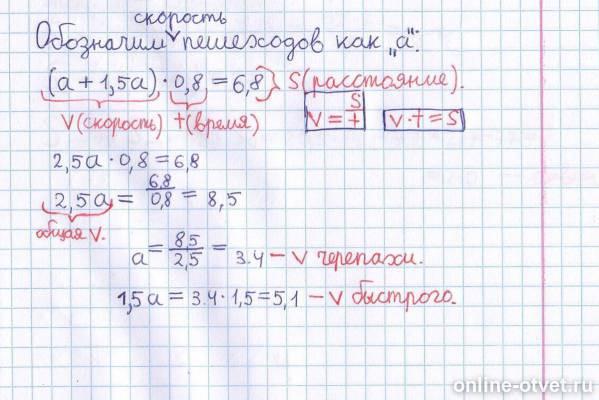 скорость
Обозначим ∨ пешеходов как „а":
(а + 1,5а) · 0,8 = 6,8} S (расстояние).
V (скорость) t (время) V = S/t V · t = S
2,5а · 0,8 = 6,8
2,5а = 6,8/0,8 = 8,5
общая V.
а = 8,5/2,5 = 3.4 – V черепахи.
1,5а = 3.4 · 1,5 = 5,1 – V быстрого.
online-otvet.ru